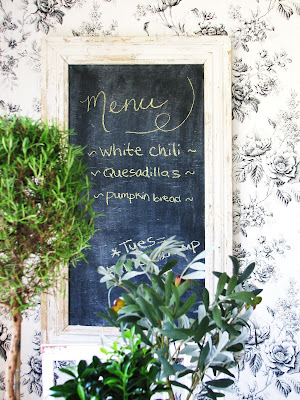 Menu
~ White chili ~
~ Quesadillas ~
~ pumpkin bread ~
* Tues =